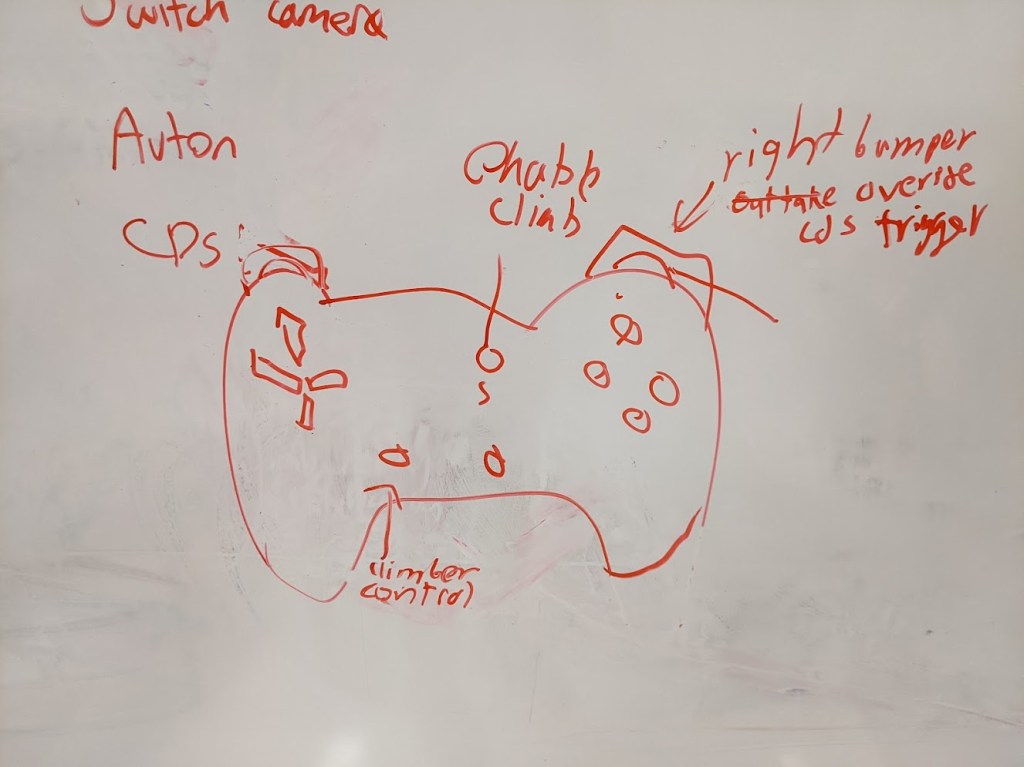 Switch camera
Auton
CDS
climb
right bumper
outtake overide
cds trigger
S
climber
control